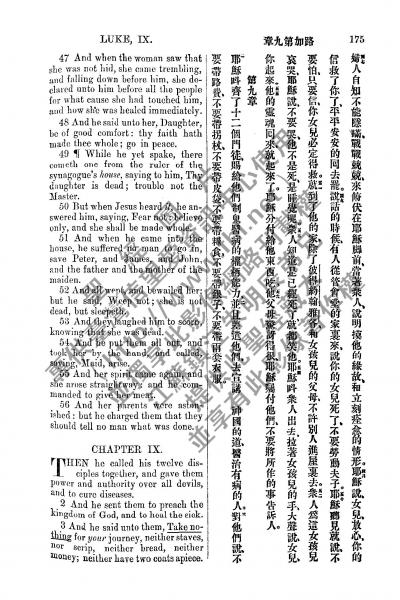 LUKE, IX.
路加第九章
175
47 And when the woman saw that
she was not hid, she came trembling,
and falling down before him, she de-
clared unto him before all the people
for what cause she had touched him,
and how she was healed immediately.
48 And he said unto her, Daughter,
be of good comfort: thy faith hath
made thee whole; go in peace.
49 ¶ While he yet spake, there
cometh one from the ruler of the
synagogue's house, saying to him, Thy
daughter is dead; trouble not the
Master.
50 But when Jesus heard it, he an-
swered him, saying, Fear not: believe
only, and she shall be made whole.
51 And when he came into the
house, he suffered no man to go in,
save Peter, and James, and John,
and the father and the mother of the
maiden.
52 And all wept, and bewailed her:
but he said, Weep not; she is not
dead, but sleepeth.
53 And they laughed him to scorn,
knowing that she was dead.
54 And he put them all out, and
took her by the hand, and called,
saying, Maid, arise.
55 And her spirit came again, and
she arose straightway: and he com-
manded to give her meat.
56 And her parents were aston-
ished: but he charged them that they
should tell no man what was done.
CHAPTER IX.
THEN he called his twelve dis-
ciples together, and gave them
power and authority over all devils,
and to cure diseases.
2 And he sent them to preach the
kingdom of God, and to heal the sick.
3 And he said unto them, Take no-
thing for your journey, neither staves,
nor scrip, neither bread, neither
money; neither have two coats apiece.
婦人自知不能隱瞞、戰戰兢兢來俯伏在耶穌跟前、當著衆人說明摸他的緣故、和立刻痊愈的情形。耶穌說、女兒放心、你的
信救了你了、平平安安的回去罷。說話的時候、有人從管會堂的家裏來、說、你的女兒死了、不要勞動夫子。耶穌聽見就說、不
要怕、只要信、你女兒必定得救。到了他的家、除了彼得約翰雅各和女孩兒的父母、不許別人進屋裏去。衆人爲這女孩兒
哀哭、耶穌說、不要哭、他不是死、是睡覺呢。衆人知道是已經死了、就都笑他。耶穌叫衆人出去、拉著女孩兒的手、大聲說、女兒、
你起來。他的靈魂回來、就起來了、耶穌分付給他東西吃。他父母驚訝得很、耶穌囑付他們、不要將所作的事告訴人。
第九章
耶穌呌齊了十二個門徒、賜給他們制鬼醫病的權柄能力。差遣他們去宣講神國的道、醫治有病的人。對他們說、不
要帶路費、不要帶拐杖、不要帶皮袋、不要帶糧食、不要帶銀子、不要帶兩套衣服。